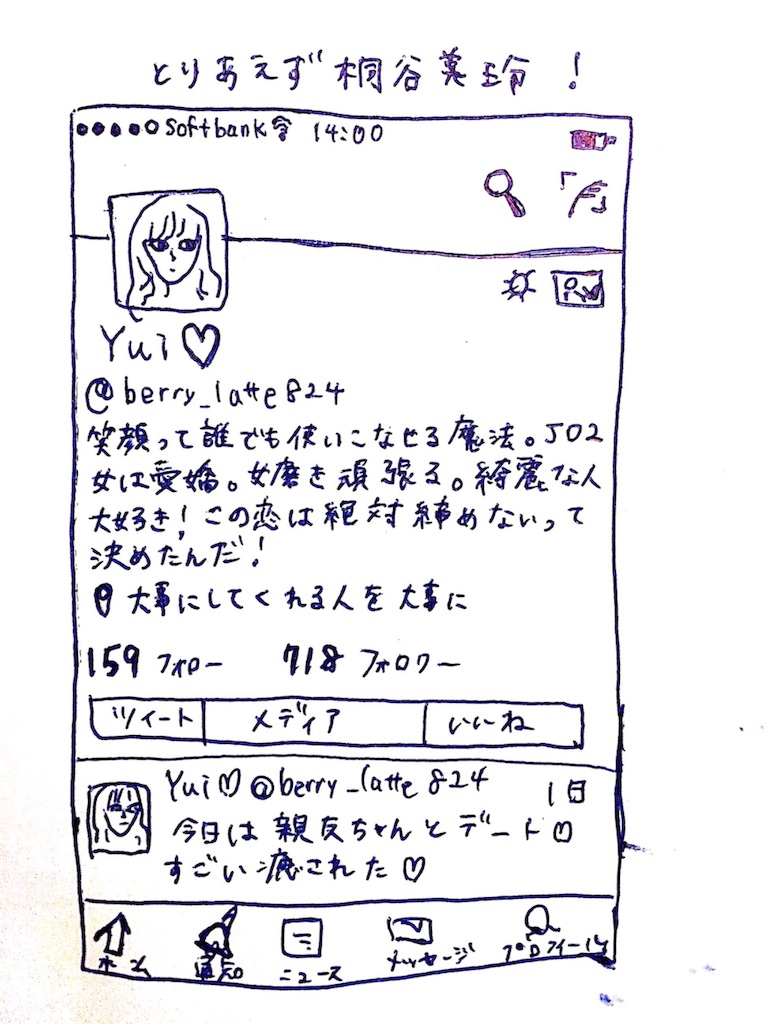 とりあえず桐谷美玲！
Softbank 14:00
Yui♡
@berry_latte824
笑顔って誰でも使いこなせる魔法。502
女は愛嬌。女磨き頑張る。綺麗な人
大好き！この恋は絶対締めないって
決めたんだ！
大事にしてくれる人を大事に
159 フォロー 718 フォロワー
ツイート メディア いいね
Yui♡ @berry_latte824 1日
今日は親友ちゃんとデート♡
すごい癒された♡
ホーム 通知 ニュース メッセージ プロフィール